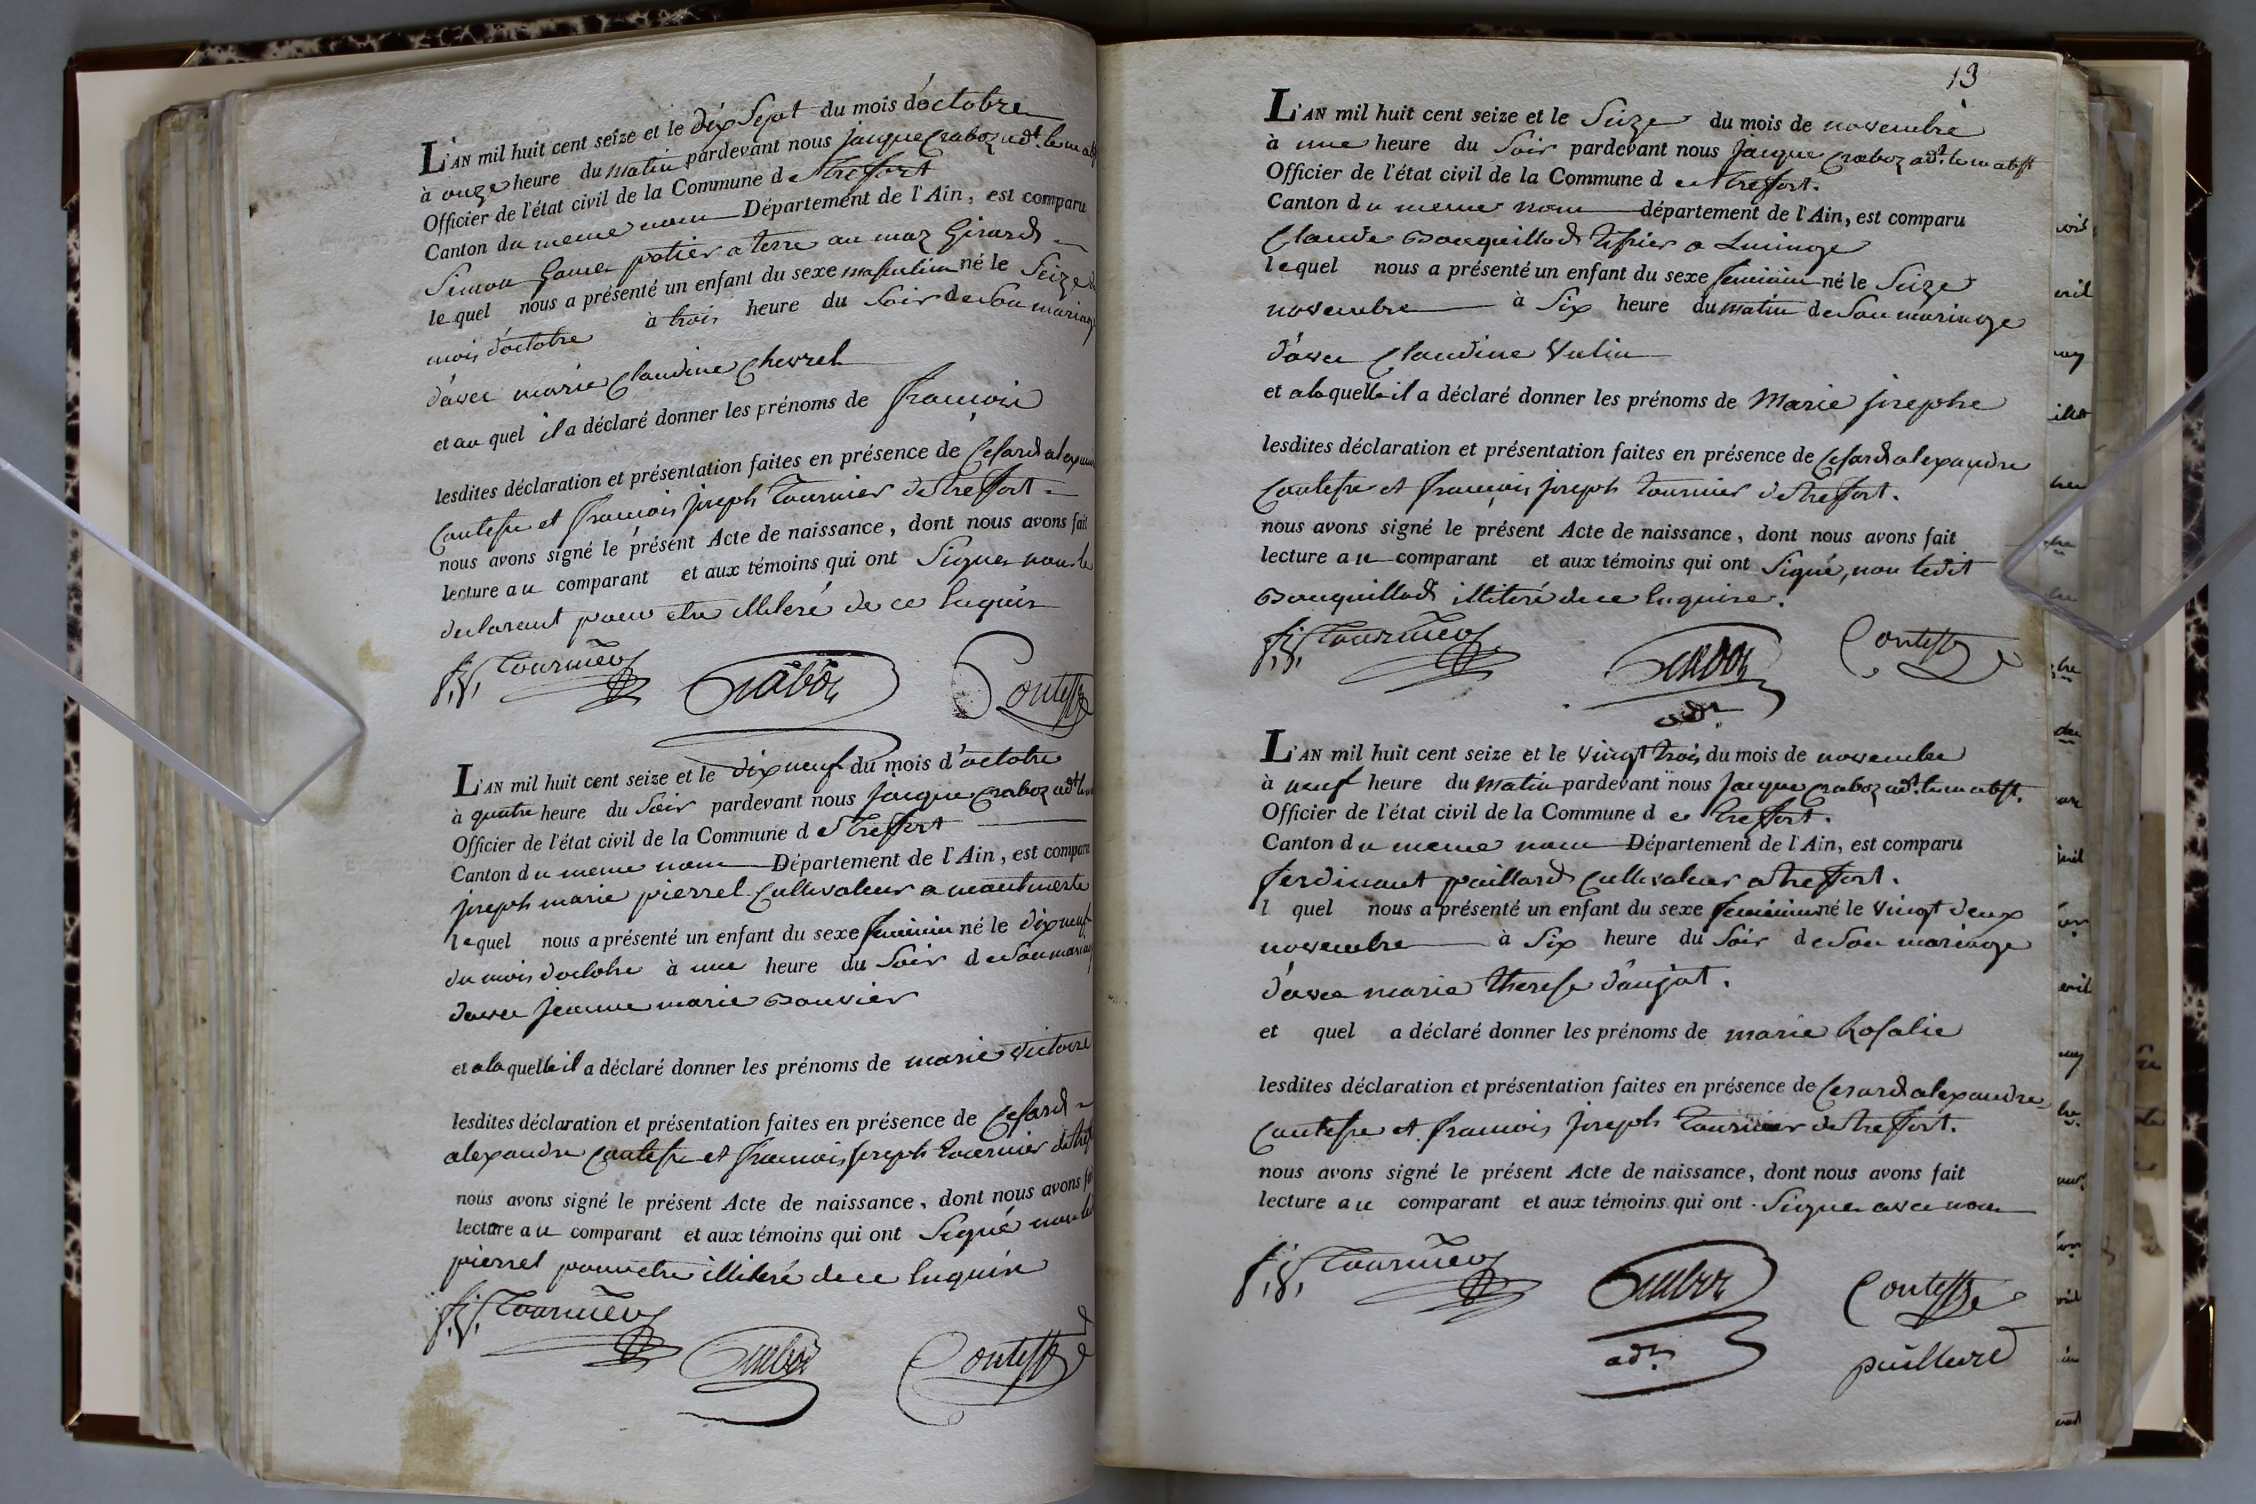 L'AN mil huit cent seize et le dix Sept du mois d'octobre
à onze heure du matin pardevant nous jacque craboz adt. le
Officier de l'état civil de la Commune de treffort
Canton du meme nom Département de l'Ain, est comparu
Simon potier a terre au maz Girard
lequel nous a présenté un enfant du sexe masculin né le Seize
mois d'octobre à trois heure du Soir de Son mariage
d'avec marie Claudine Chevrel
et au quel il a déclaré donner les prénoms de francois
lesdites déclaration et présentation faites en présence de Cesard
Contesse et francois joseph tournier de treffort
nous avons signé le présent Acte de naissance, dont nous avons fait
lecture au comparant et aux témoins qui ont Signer non le
declarant pour etre illiteré de ce Enquis
f. j. Tournier Crabôz Contesse
L'AN mil huit cent seize et le dix neuf du mois d'octobre
à quatre heure du Soir pardevant nous jacque craboz adt
Officier de l'état civil de la Commune de treffort
Canton du meme nom Département de l'Ain, est comparu
joseph marie pierrel Cultivateur a
lequel nous a présenté un enfant du sexe feminin né le dix neuf
du mois d'octobre à une heure du Soir de Son mariage
d'avec jeanne marie Bouvier
et a la quelle il a déclaré donner les prénoms de marie victoire
lesdites déclaration et présentation faites en présence de Cesard
alexandre Contesse et francois joseph tournier de
nous avons signé le présent Acte de naissance, dont nous avons
lecture au comparant et aux témoins qui ont Signé non
pierrel pour etre illiteré de ce Enquis
f. j. Tournier Craboz Contesse
13
L'AN mil huit cent seize et le Seize du mois de novembre
à une heure du Soir pardevant nous jacque craboz adt.
Officier de l'état civil de la Commune de treffort.
Canton du meme nom département de l'Ain, est comparu
Claude Bouquillod a Luminoge
lequel nous a présenté un enfant du sexe feminin né le Seize
novembre à Six heure du matin de Son mariage
d'avec Claudine Vulin
et a la quelle il a déclaré donner les prénoms de Marie josephe
lesdites déclaration et présentation faites en présence de Cesard alexandre
Contesse et françois joseph tournier de treffort.
nous avons signé le présent Acte de naissance, dont nous avons fait
lecture au comparant et aux témoins qui ont Signé, non ledit
Bouquillod illiteré de ce Enquise.
f. j. Tournier Craboz Contesse
adt.
L'AN mil huit cent seize et le vingt trois du mois de novembre
à neuf heure du matin pardevant nous jacque craboz adt.
Officier de l'état civil de la Commune de treffort.
Canton du meme nom Département de l'Ain, est comparu
ferdinant paillard Cultivateur a treffort.
l quel nous a présenté un enfant du sexe feminin né le vingt deux
novembre à Six heure du Soir de Son mariage
d'avec marie therese d'aujat.
et quel a déclaré donner les prénoms de marie Rosalie
lesdites déclaration et présentation faites en présence de Cesard alexandre
Contesse et francois joseph tournier de treffort.
nous avons signé le présent Acte de naissance, dont nous avons fait
lecture au comparant et aux témoins qui ont Signer avec nous
f. j. Tournier Craboz Contesse
adt. paillard